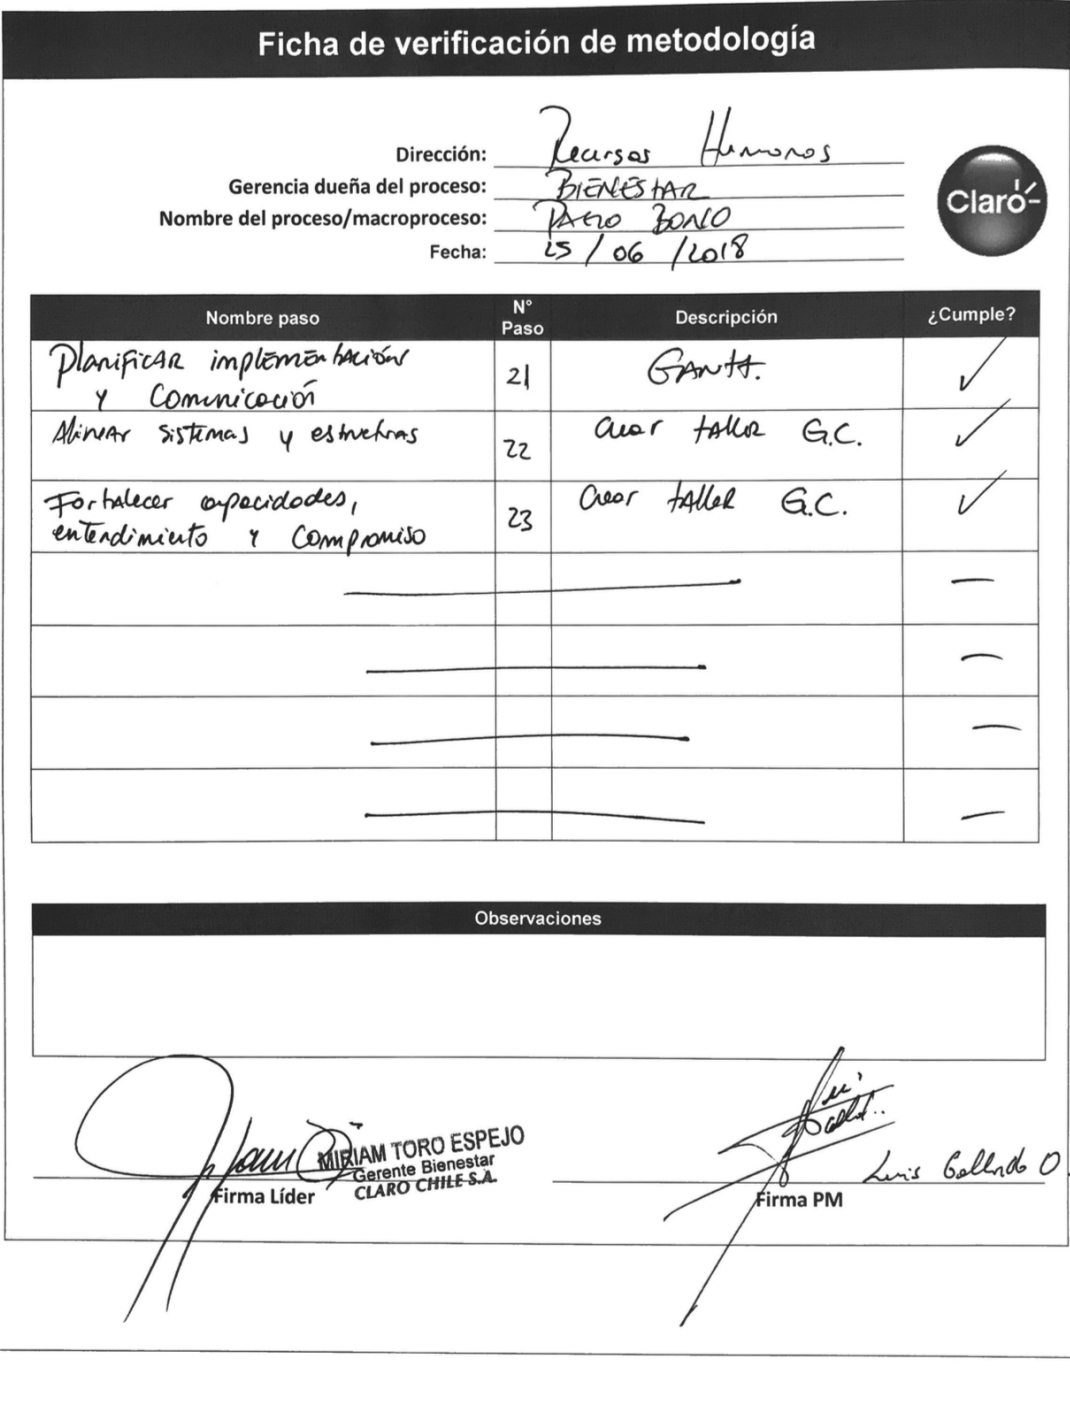 Ficha de verificación de metodología
Dirección: Recursos Humanos
Gerencia dueña del proceso: BIENESTAR
Nombre del proceso/macroproceso: PAGO BONO
Fecha: 25/06/2018
Claro
Nombre paso N° Paso Descripción ¿Cumple?
Planificar implementación
y Comunicación 21 GANTT. ✓
Alinear sistemas y estructuras 22 Crear taller G.C. ✓
Fortalecer capacidades,
entendimiento y Compromiso 23 Crear taller G.C. ✓
Observaciones
MIRIAM TORO ESPEJO
Gerente Bienestar
CLARO CHILE S.A.
Firma Líder
Luis Gallardo O.
Firma PM